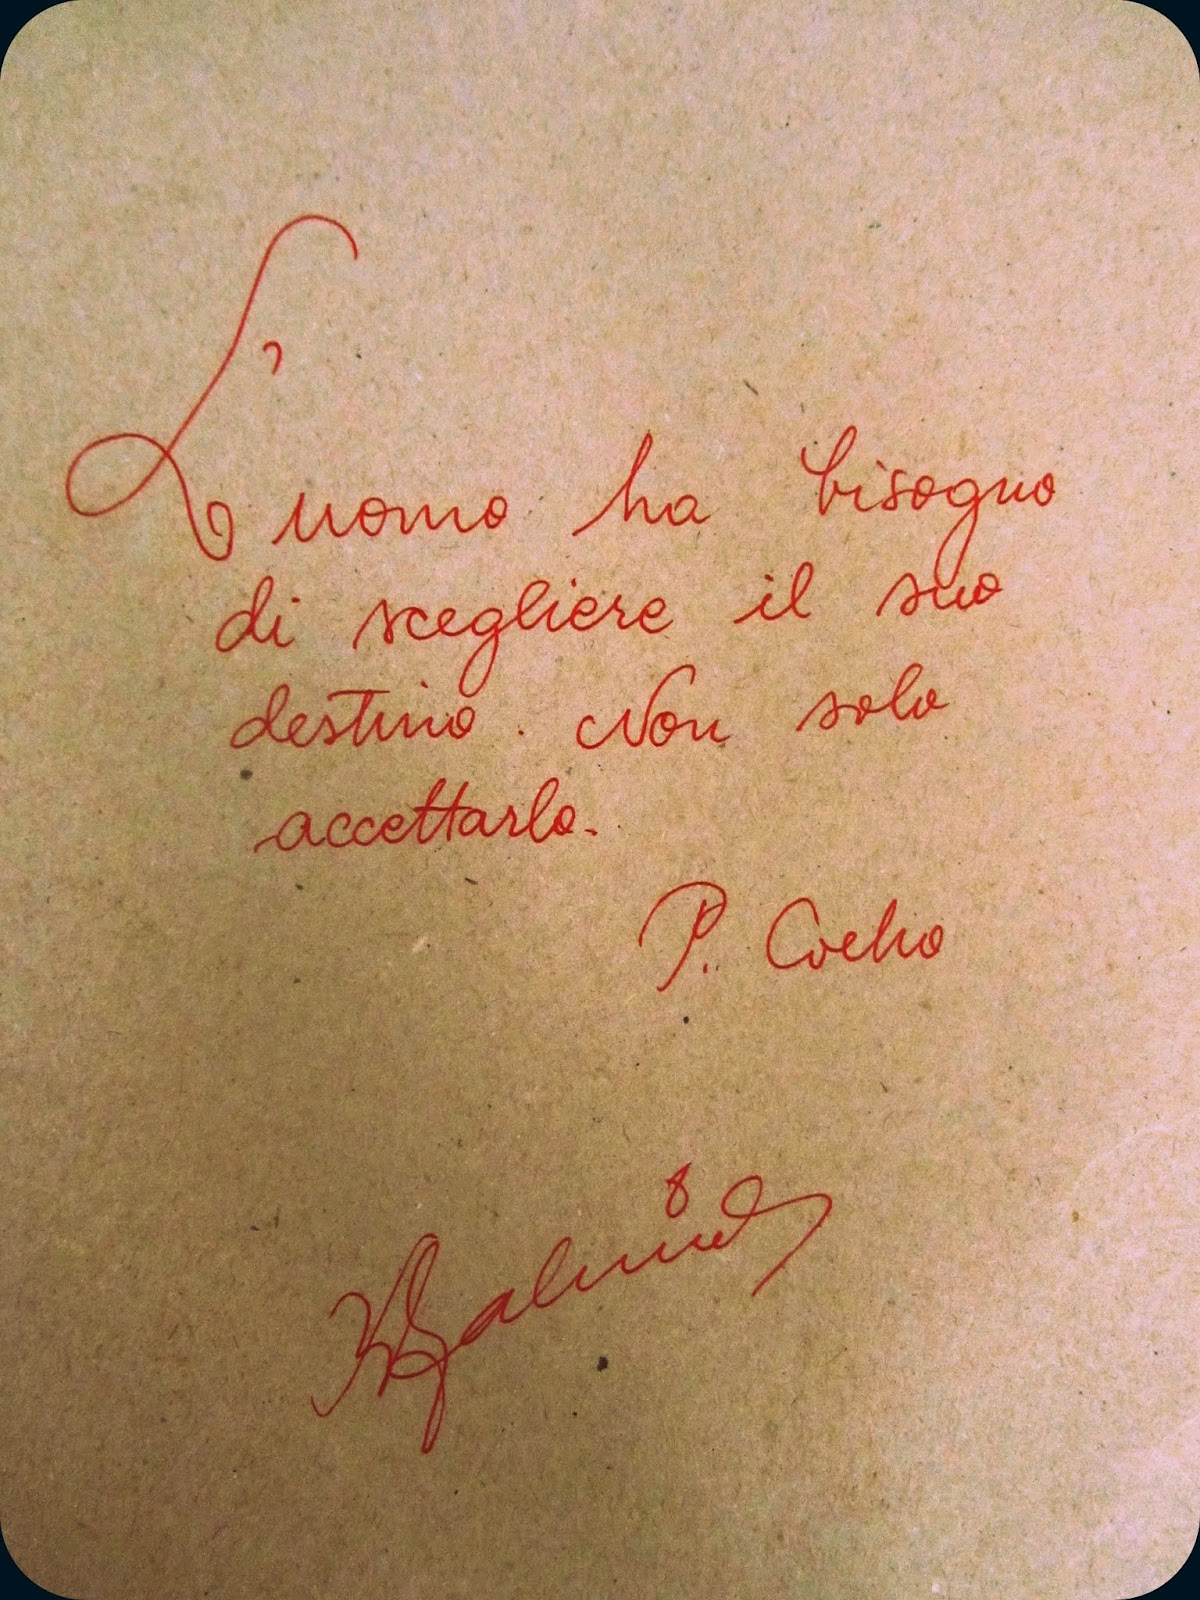 L'uomo ha bisogno
di scegliere il suo
destino. Non solo
accettarlo.
P. Coelho